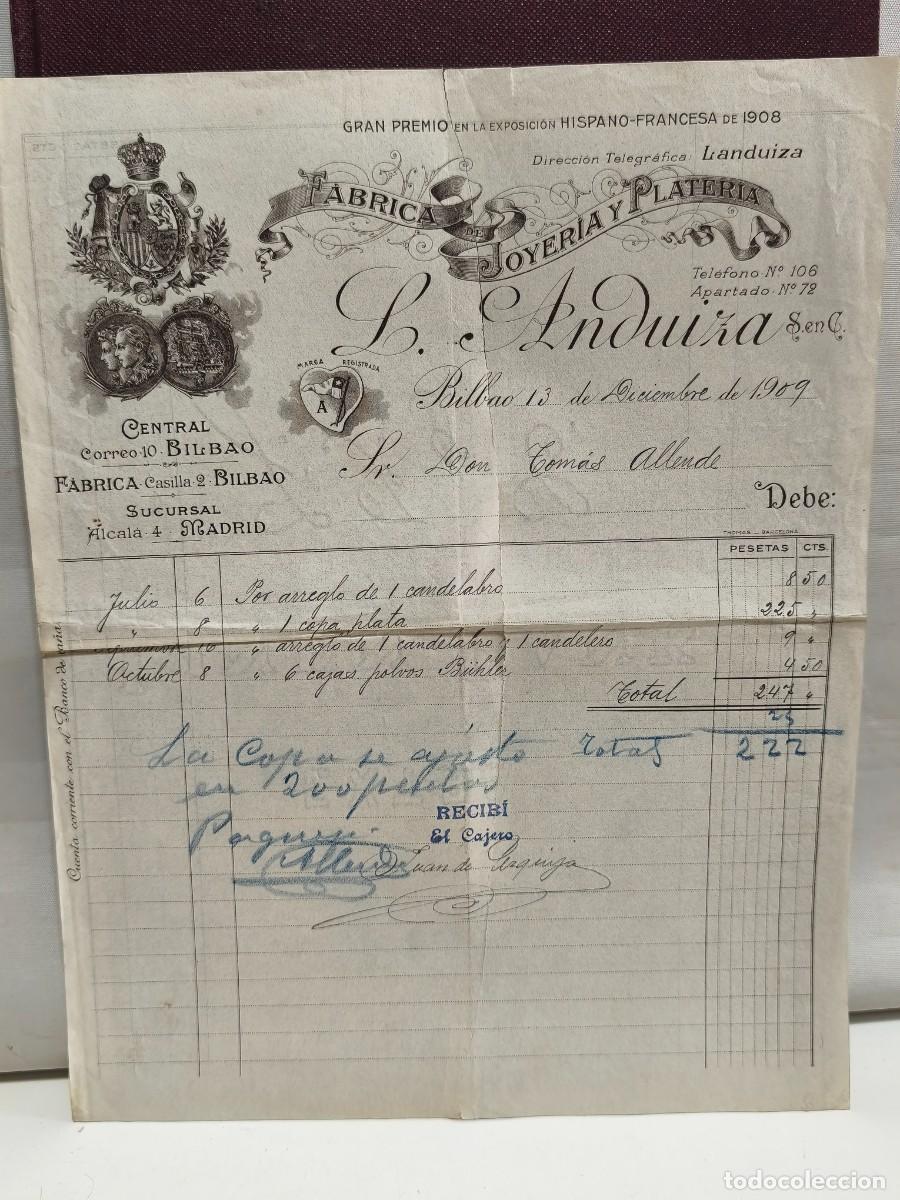 GRAN PREMIO EN LA EXPOSICIÓN HISPANO-FRANCESA DE 1908
Dirección Telegráfica: Landuiza
FÁBRICA DE JOYERÍA Y PLATERÍA
Teléfono Nº 106
Apartado Nº 72
L. Anduiza S. en C.
MARCA REGISTRADA
A
Bilbao 13 de Diciembre de 1909
CENTRAL
Correo 10 BILBAO
FÁBRICA Casilla 2 BILBAO
SUCURSAL
Alcalá 4 MADRID
Sr. Don Tomás Allende
Debe:
THOMAS - BARCELONA
PESETAS CTS.
Julio 6 Por arreglo de 1 candelabro 8 50
" 8 " 1 copa plata 225 "
10 " arreglo de 1 candelabro y 1 candelero 9 "
Octubre 8 " 6 cajas polvos Bühler 4 50
Total 247 "
25
La Copa se ajusto Total 222
en 200 pesetas
RECIBÍ
El Cajero
Allende Juan de
Cuenta corriente con el Banco de España
todocoleccion